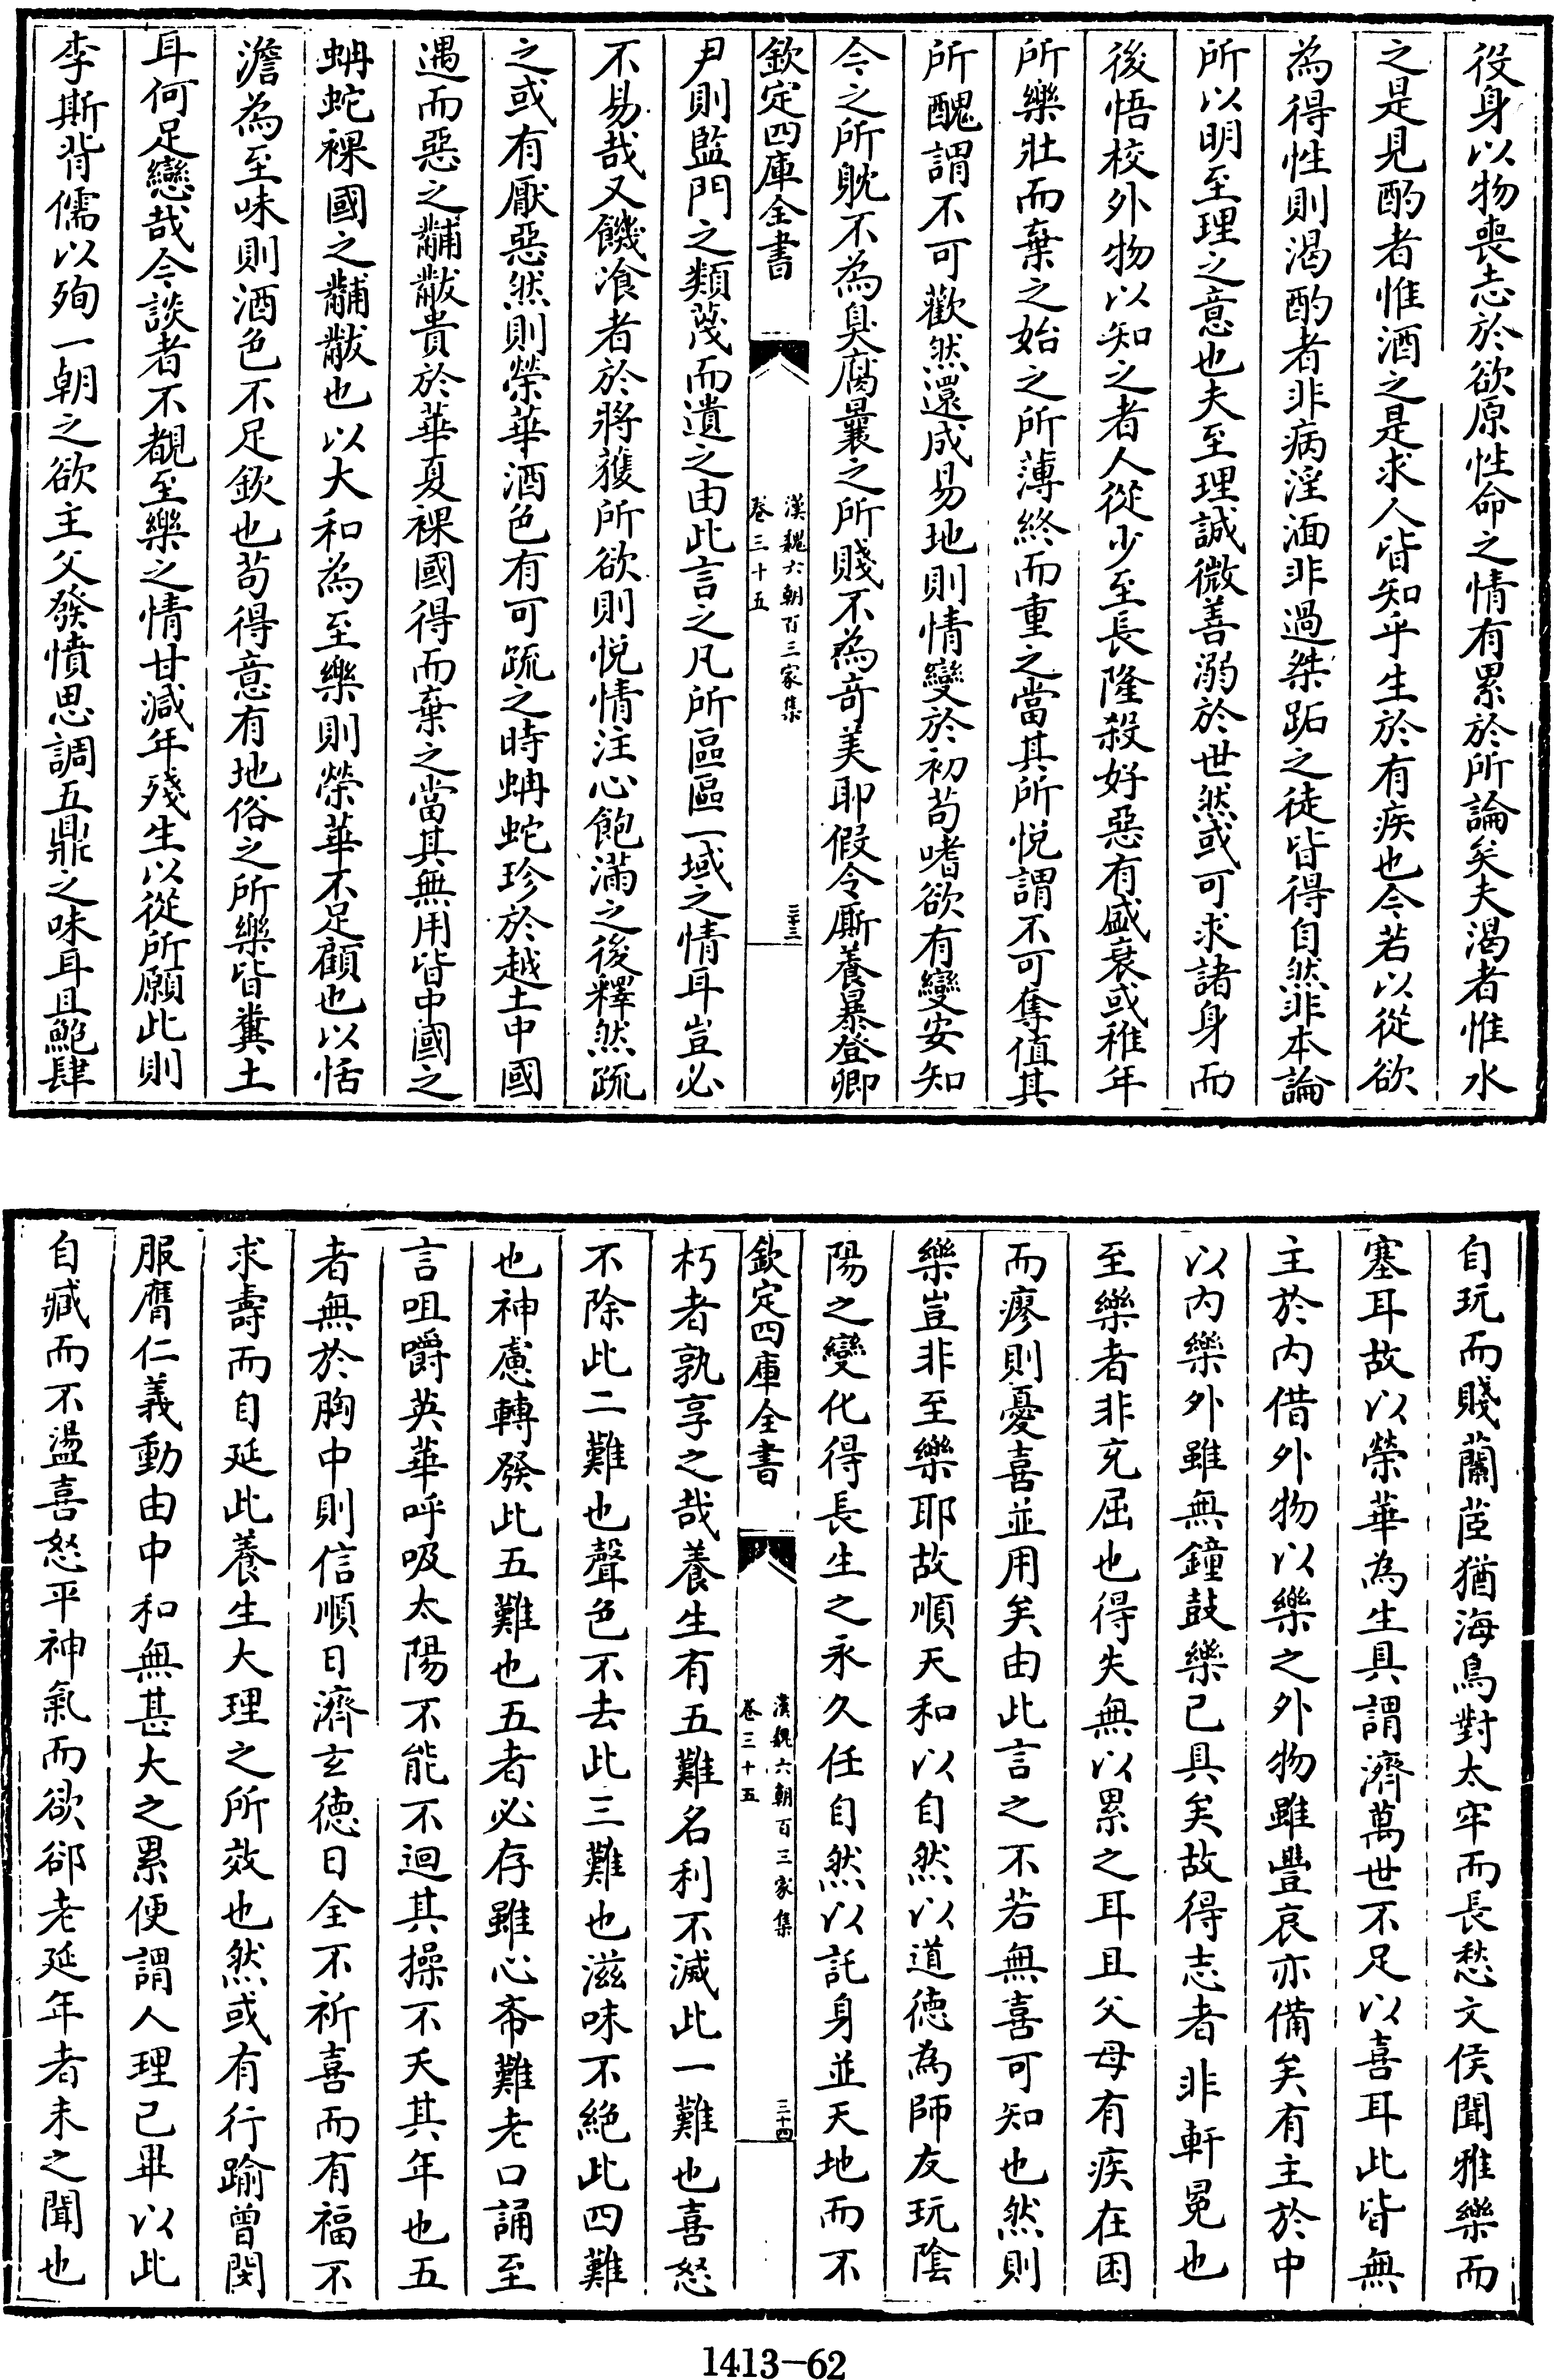 役身以物喪志於欲原性命之情有累於所論矣夫渴者惟水
之是見酌者惟酒之是求人皆知乎生於有疾也今若以從欲
為得性則渴酌者非病淫湎非過桀跖之徒皆得自然非本論
所以明至理之意也夫至理誠微善溺於世然或可求諸身而
後悟校外物以知之者人從少至長隆殺好惡有盛衰或稚年
所樂壯而棄之始之所薄終而重之當其所悅謂不可奪值其
所醜謂不可歡然還成易地則情變於初苟嗜欲有變安知
今之所躭不為臭腐曩之所賤不為奇美耶假令廝養暴登卿
欽定四庫全書
漢魏六朝百三家集
卷三十五
三十三
尹則監門之類蔑而遺之由此言之凡所區區一域之情耳豈必
不易哉又饑飡者於將獲所欲則悅情注心飽滿之後釋然疏
之或有厭惡然則榮華酒色有可疏之時蚺蛇珍於越土中國
遇而惡之黼黻貴於華夏裸國得而棄之當其無用皆中國之
蚺蛇裸國之黼黻也以大和為至樂則榮華不足顧也以恬
澹為至味則酒色不足欽也苟得意有地俗之所樂皆糞土
耳何足戀哉今談者不覩至樂之情甘減年殘生以從所願此則
李斯背儒以殉一朝之欲主父發憤思調五鼎之味耳且鮑肆
自玩而賤蘭茝猶海鳥對太牢而長愁文侯聞雅樂而
塞耳故以榮華為生具謂濟萬世不足以喜耳此皆無
主於內借外物以樂之外物雖豐哀亦備矣有主於中
以內樂外雖無鐘鼓樂已具矣故得志者非軒冕也
至樂者非充屈也得失無以累之耳且父母有疾在困
而瘳則憂喜並用矣由此言之不若無喜可知也然則
樂豈非至樂耶故順天和以自然以道德為師友玩陰
陽之變化得長生之永久任自然以託身並天地而不
欽定四庫全書
漢魏六朝百三家集
卷三十五
三十四
朽者孰享之哉養生有五難名利不滅此一難也喜怒
不除此二難也聲色不去此三難也滋味不絕此四難
也神慮轉發此五難也五者必存雖心希難老口誦至
言咀嚼英華呼吸太陽不能不迴其操不夭其年也五
者無於胸中則信順日濟玄德日全不祈喜而有福不
求壽而自延此養生大理之所效也然或有行踰曾閔
服膺仁義動由中和無甚大之累便謂人理已畢以此
自臧而不盪喜怒平神氣而欲郤老延年者未之聞也
1413-62